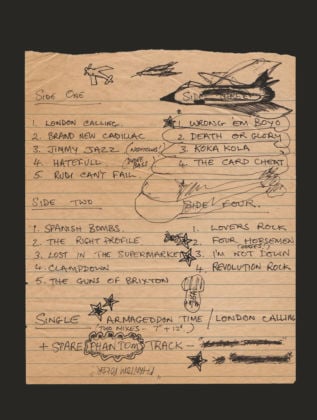 SIDE ONE
1. LONDON CALLING.
2. BRAND NEW CADILLAC
3. JIMMY JAZZ
4. HATEFULL
5. RUDI CAN'T FAIL
SIDE
1 WRONG 'EM BOYO
2 DEATH OR GLORY
3. KOKA KOLA
4. THE CARD CHEAT
SIDE TWO
1. SPANISH BOMBS.
2. THE RIGHT PROFILE
3. LOST IN THE SUPERMARKET
4. CLAMPDOWN
5. THE GUNS OF BRIXTON
SIDE FOUR.
1. LOVERS ROCK
2. FOUR HORSEMEN
3. I'M NOT DOWN
4. REVOLUTION ROCK
SINGLE ARMAGEDDON TIME / LONDON CALLING
(TWO MIXES - 7" + 12")
+ SPARE PHANTOM TRACK -